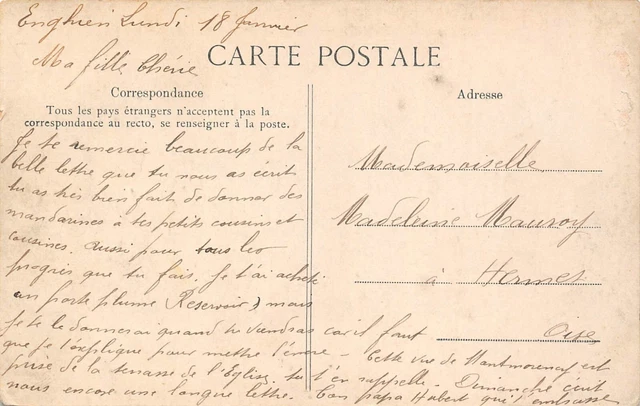 Enghien Lundi 18 Janvier
Ma fille Chérie
CARTE POSTALE
Correspondance
Tous les pays étrangers n'acceptent pas la
correspondance au recto, se renseigner à la poste.
Je te remercie beaucoup de la
belle lettre que tu nous as écrit
tu as très bien fait de donner des
mandarines à tes petits cousins et
cousines. aussi pour tous les
progrès que tu fais. Je t'ai acheté
un porte plume (Reservoir) mais
je te le donnerai quand tu viendras car il faut
que je t'explique pour mettre l'encre — Cette vue de Montmorency est
prise de la terrasse de l'Eglise. tu t'en rappelle. Dimanche écrit
nous encore une longue lettre. Ton papa Hubert qui t'embrasse
Adresse
Mademoiselle
Madeleine Mauroy
à Hermes
Oise